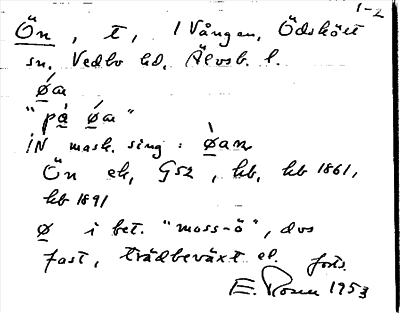 1-2
Ön, t, 1 Vången, Ödskölt
sn, Vedbo hd, Älvsb. l.
øa
"på øa"
IN mask. sing: øan
Ön ek, G52, hb, hb 1861,
hb 1891
ø i bet. "moss-ö", dvs
fast, trädbeväxt el. forts.
E. Rosen 1953